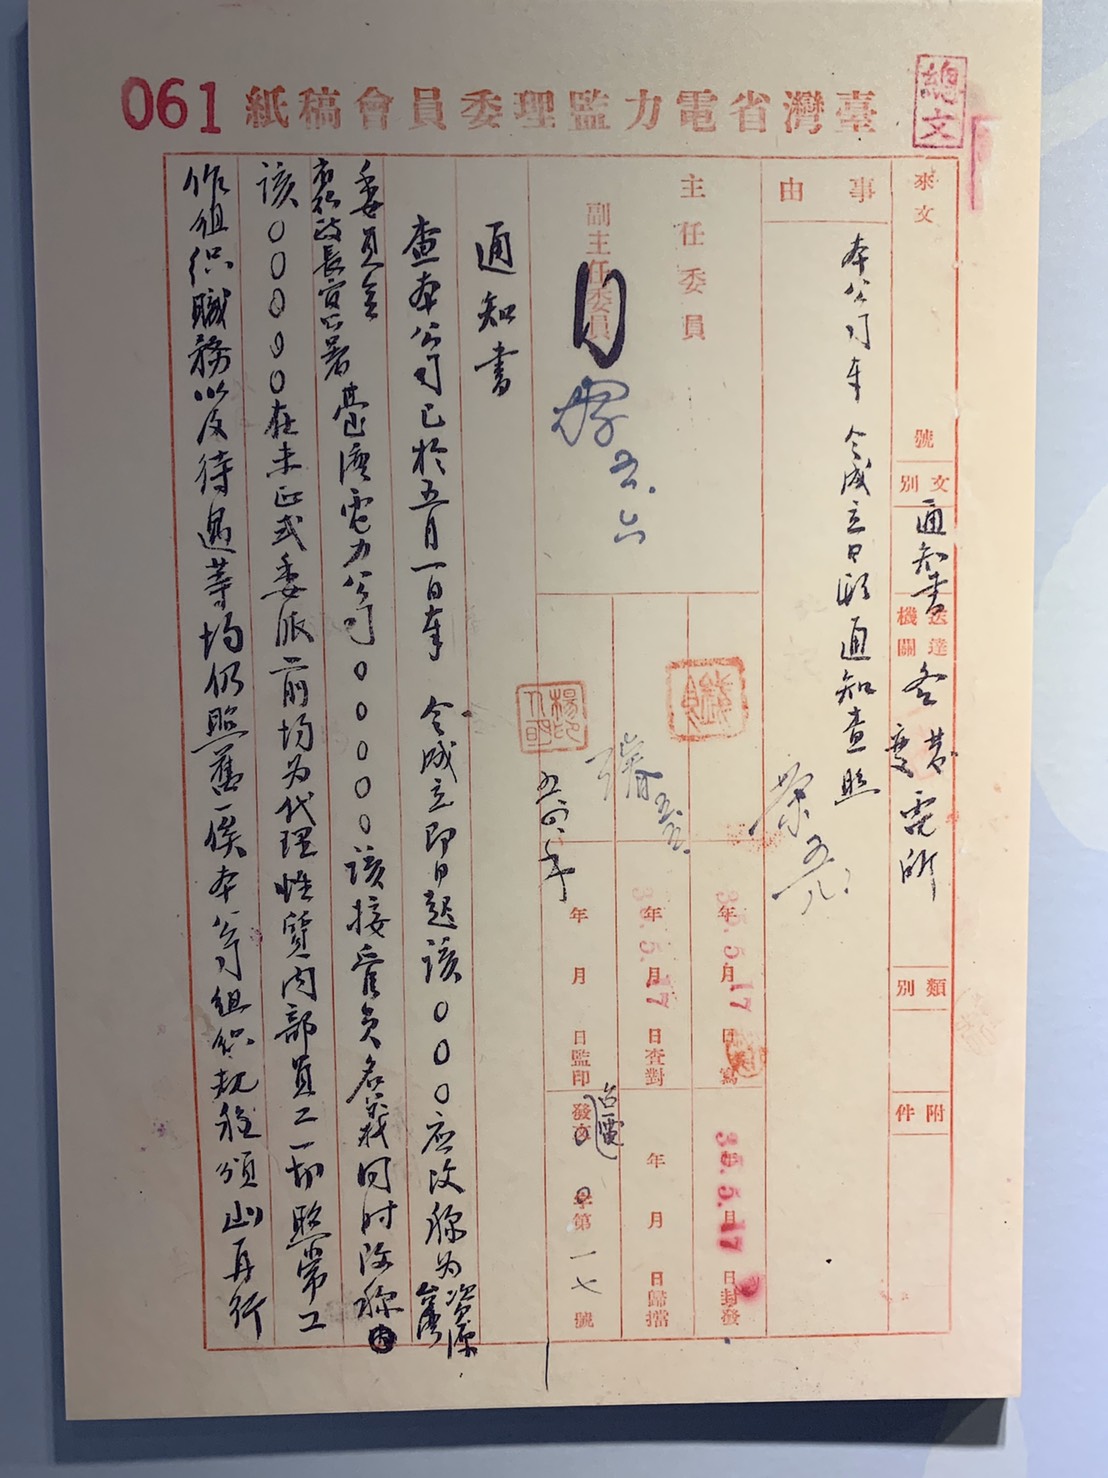 061
臺灣省電力監理委員會稿紙
總文
來文
號
文別
通知書
送達機關
各營變電所
類別
附件
事由
本公司奉 令成立日期通知查照
主任委員
副主任委員
五.六
五.五.
35.5.17
年月日繕寫
35.5.17
年月日查對
年月日監印
35.5.17
年月日封發
年月日歸擋
發文
台電
字第一七號
通知書
查本公司已於五月一日奉 令成立即日起該〇〇〇应改称为資源
委員會台灣
行政長官公署臺灣電力公司〇〇〇〇〇該接管員名義同時改称
該〇〇〇〇〇在未正式委派前均为代理性質内部員工一切照常工
作組织職務以及待遇等均仍照舊一俟本公司組织規程頒出再行